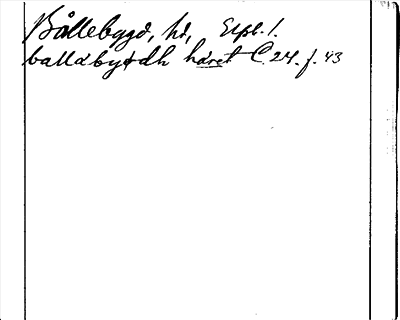 Bållebygd, hd, Espl. 1.
balldbygdh häret C 24. f. 43